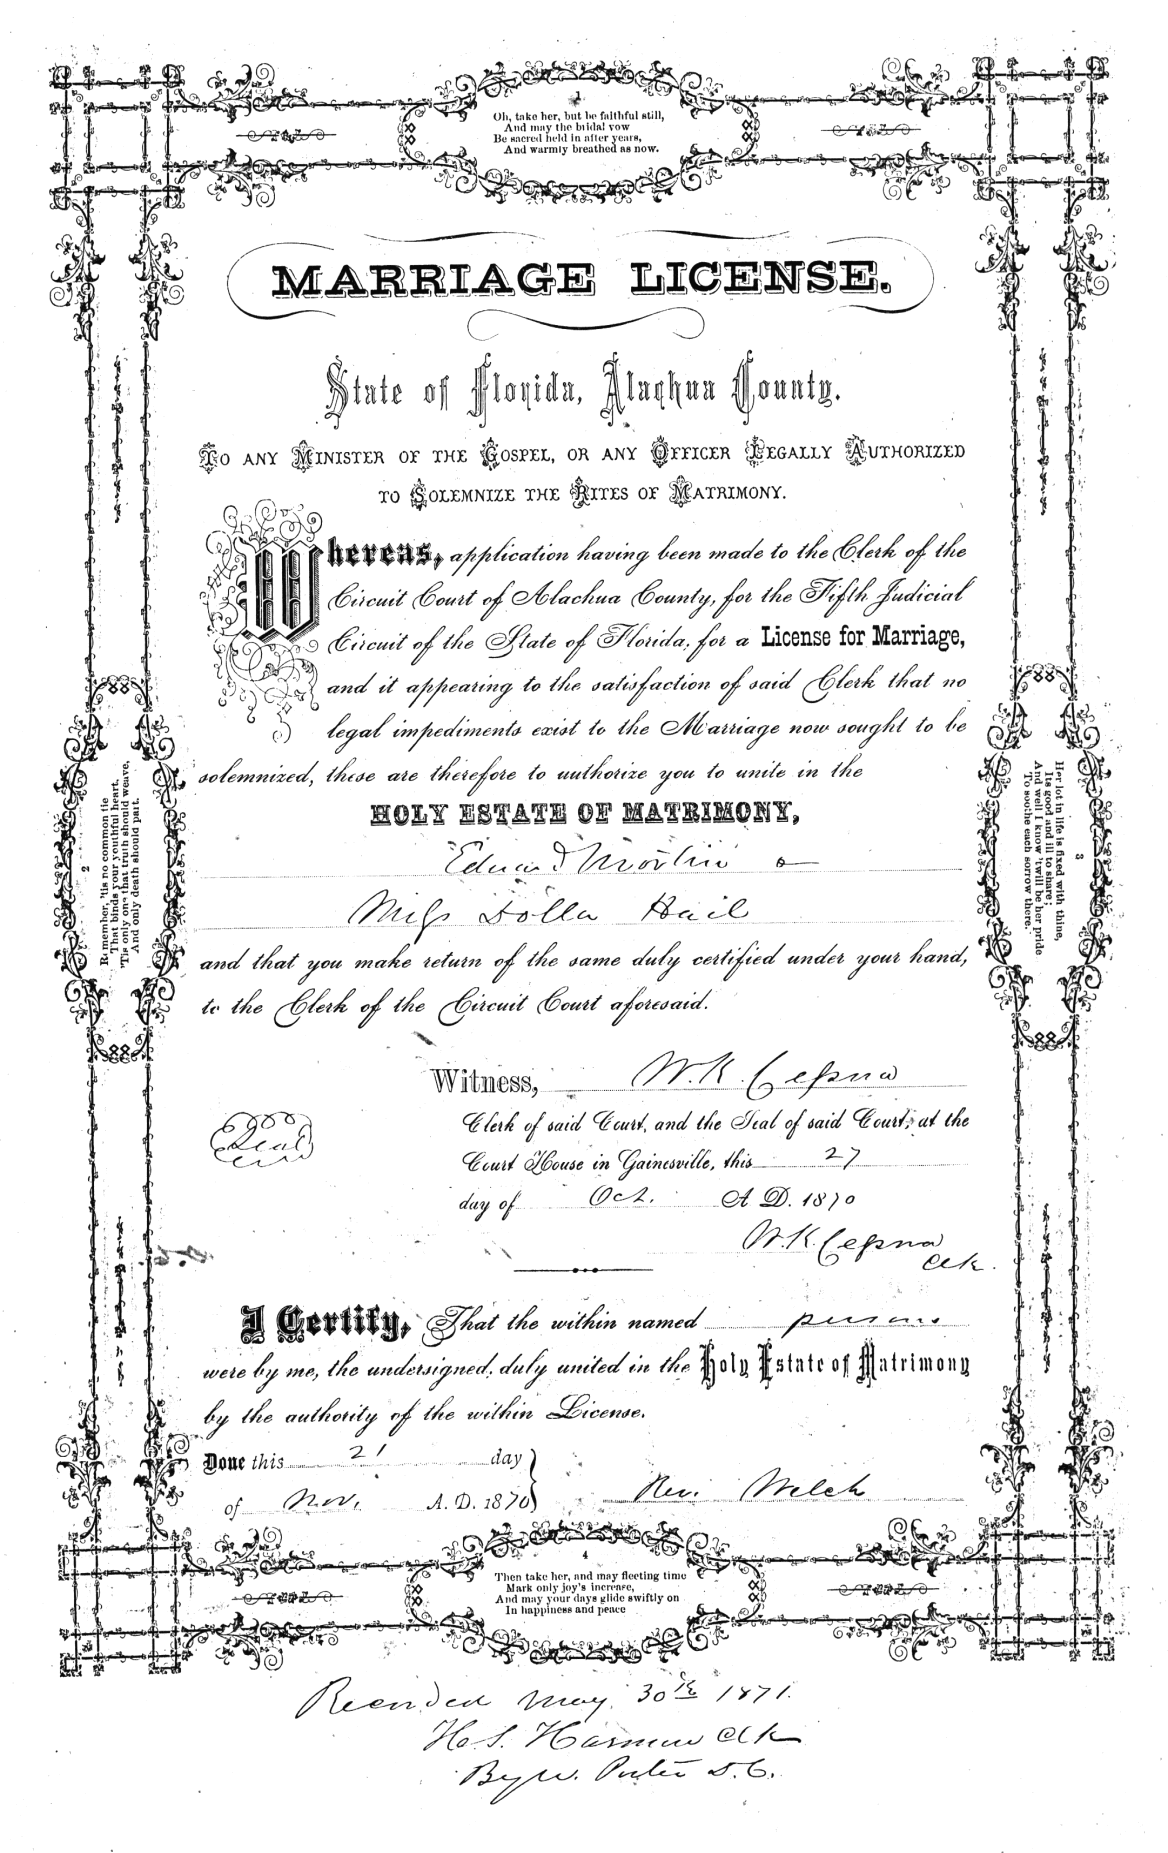 1
Oh, take her, but be faithful still,
And may the bridal vow
Be sacred held in after years,
And warmly breathed as now.
MARRIAGE LICENSE.
State of Florida, Alachua County.
To any Minister of the Gospel, or any Officer Legally Authorized
to Solemnize the Rites of Matrimony.
Whereas, application having been made to the Clerk of the
Circuit Court of Alachua County, for the Fifth Judicial
Circuit of the State of Florida, for a License for Marriage,
and it appearing to the satisfaction of said Clerk that no
legal impediments exist to the Marriage now sought to be
solemnized, these are therefore to authorize you to unite in the
HOLY ESTATE OF MATRIMONY,
Edward
Miss Dolla Hail
and that you make return of the same duly certified under your hand,
to the Clerk of the Circuit Court aforesaid.
Witness, W. K. Cessna
Clerk of said Court, and the Seal of said Court, at the
Court House in Gainesville, this 27
day of Oct. A. D. 1870
W. K. Cessna
Clk.
Seal
I Certify, That the within named persons
were by me, the undersigned, duly united in the Holy Estate of Matrimony
by the authority of the within License.
Done this 21 day
of Nov. A. D. 1870
Rev. Welch
2
Remember, 'tis no common tie
That binds your youthful heart,
'Tis only one that truth should weave,
And only death should part.
3
Her lot in life is fixed with thine,
Its good and ill to share;
And well I know 'twill be her pride
To soothe each sorrow there.
4
Then take her, and may fleeting time
Mark only joy's increase,
And may your days glide swiftly on
In happiness and peace
Recorded May 30th 1871.
H. S. Harmon Clk
By W. Porter D. C.